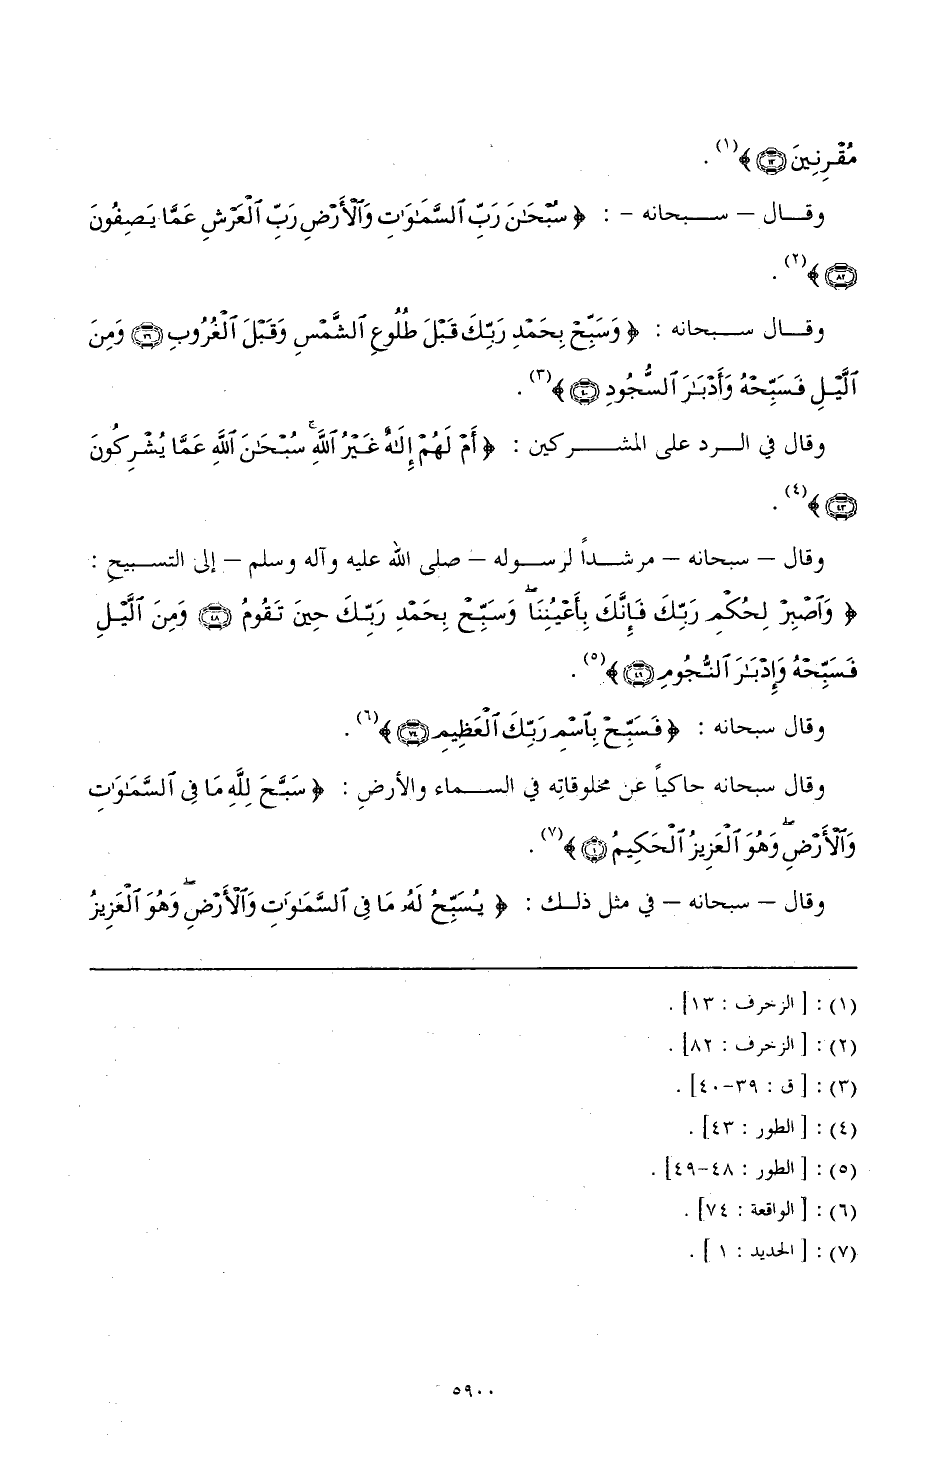 مُقْرِنِينَ ١٣ ﴾(١) .
وقال – سبحانه – : ﴿ سُبْحَٰنَ رَبِّ ٱلسَّمَٰوَٰتِ وَٱلْأَرْضِ رَبِّ ٱلْعَرْشِ عَمَّا يَصِفُونَ
٨٢ ﴾(٢) .
وقال سبحانه : ﴿ وَسَبِّحْ بِحَمْدِ رَبِّكَ قَبْلَ طُلُوعِ ٱلشَّمْسِ وَقَبْلَ ٱلْغُرُوبِ ٣٩ وَمِنَ
ٱلَّيْلِ فَسَبِّحْهُ وَأَدْبَٰرَ ٱلسُّجُودِ ٤٠ ﴾(٣) .
وقال في الرد على المشركين : ﴿ أَمْ لَهُمْ إِلَٰهٌ غَيْرُ ٱللَّهِ ۚ سُبْحَٰنَ ٱللَّهِ عَمَّا يُشْرِكُونَ
٤٣ ﴾(٤) .
وقال – سبحانه – مرشداً لرسوله – صلى الله عليه وآله وسلم – إلى التسبيح :
﴿ وَٱصْبِرْ لِحُكْمِ رَبِّكَ فَإِنَّكَ بِأَعْيُنِنَا ۖ وَسَبِّحْ بِحَمْدِ رَبِّكَ حِينَ تَقُومُ ٤٨ وَمِنَ ٱلَّيْلِ
فَسَبِّحْهُ وَإِدْبَٰرَ ٱلنُّجُومِ ٤٩ ﴾(٥) .
وقال سبحانه : ﴿ فَسَبِّحْ بِٱسْمِ رَبِّكَ ٱلْعَظِيمِ ٧٤ ﴾(٦) .
وقال سبحانه حاكياً عن مخلوقاتِه في السماء والأرضِ : ﴿ سَبَّحَ لِلَّهِ مَا فِى ٱلسَّمَٰوَٰتِ
وَٱلْأَرْضِ ۖ وَهُوَ ٱلْعَزِيزُ ٱلْحَكِيمُ ١ ﴾(٧) .
وقال – سبحانه – في مثل ذلك : ﴿ يُسَبِّحُ لَهُۥ مَا فِى ٱلسَّمَٰوَٰتِ وَٱلْأَرْضِ ۖ وَهُوَ ٱلْعَزِيزُ
(١) : [ الزخرف : ١٣] .
(٢) : [ الزخرف : ٨٢] .
(٣) : [ ق : ٣٩-٤٠] .
(٤) : [ الطور : ٤٣] .
(٥) : [ الطور : ٤٨-٤٩] .
(٦) : [ الواقعة : ٧٤] .
(٧) : [ الحديد : ١ ] .
٥٩٠٠